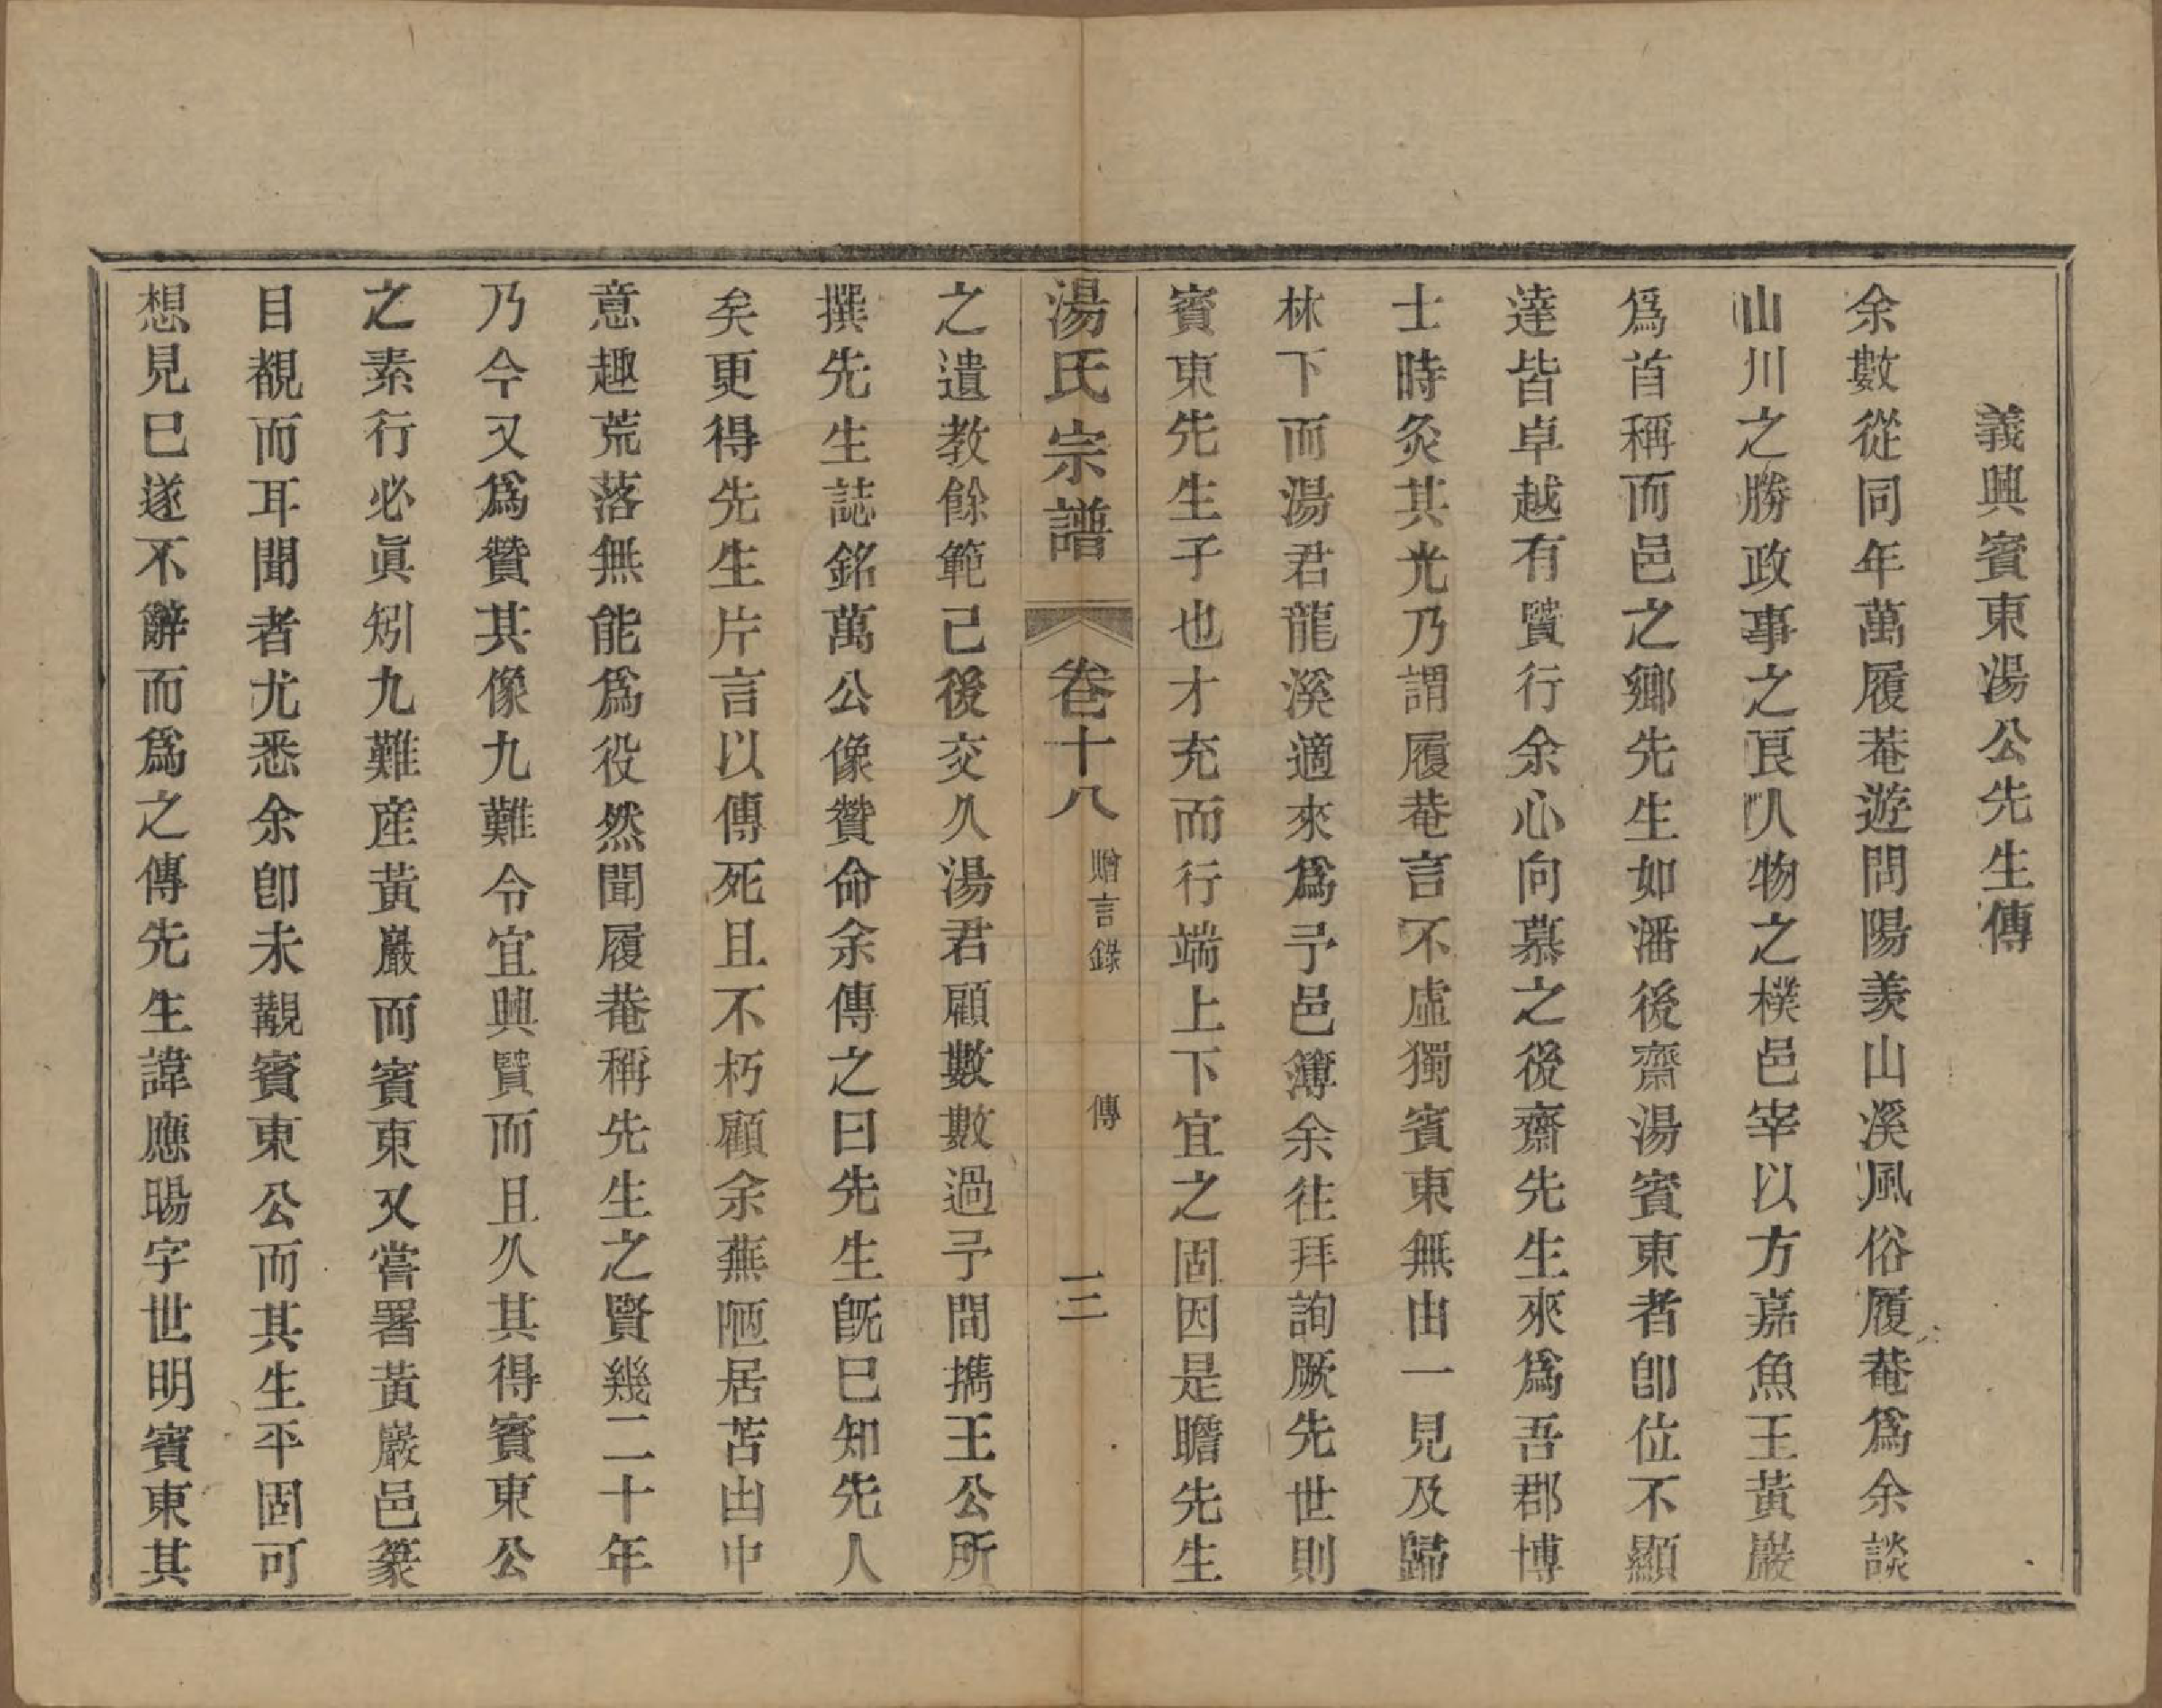 義興賓東湯公先生傳
余數從同年萬履菴遊問陽羨山溪風俗履菴爲余談
山川之勝政事之良人物之樸邑宰以方嘉魚王黃巖
爲首稱而邑之鄉先生如潘後齋湯賓東者卽位不顯
達皆卓越有賢行余心向慕之後齋先生來爲吾郡博
士時灸其光乃謂履菴言不虛獨賓東無由一見及歸
林下而湯君龍溪適來爲予邑簿余往拜詢厥先世則
賓東先生子也才充而行端上下宜之固因是瞻先生
湯氏宗譜 卷十八 贈言錄 傳 三
之遺教餘範已後交久湯君顧數數過予間擕王公所
撰先生誌銘萬公像贊命余傳之曰先生旣巳知先人
矣更得先生片言以傳死且不朽顧余蕪陋居苫凷中
意趣荒落無能爲役然聞履菴稱先生之賢幾二十年
乃今又爲贊其像九難令宜興賢而且久其得賓東公
之素行必眞矧九難產黃巖而賓東又嘗署黃巖邑篆
目覩而耳聞者尤悉余卽未覯賓東公而其生平固可
想見巳遂不辭而爲之傳先生諱應暘字世明賓東其